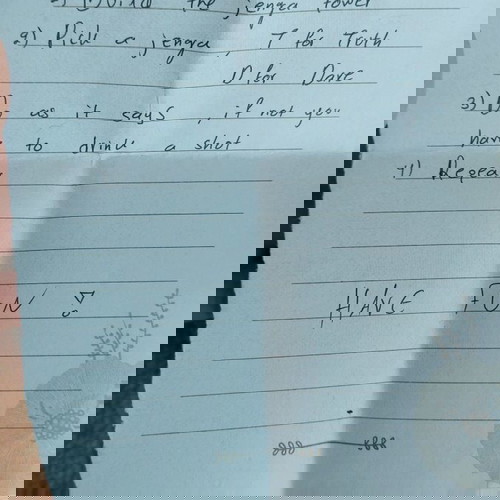 1) Build the jenga tower
2) Pick a jenga, T for Truth
D for Dare
3) Do as it says, if not you
have to drink a shot
4) Repeat
HAVE FUN !